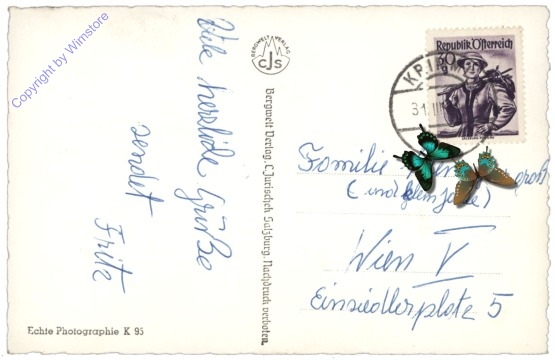 Copyright by Wimstore
Viele herzliche Grüße
sendet
Fritz
Echte Photographie K 95
BERGWELT VERLAG
CJS
Bergwelt Verlag, C. Jurischek Salzburg, Nachdruck verboten.
Republik Österreich
31. III
Familie
(und
Wien V
Einsiedlerplatz 5